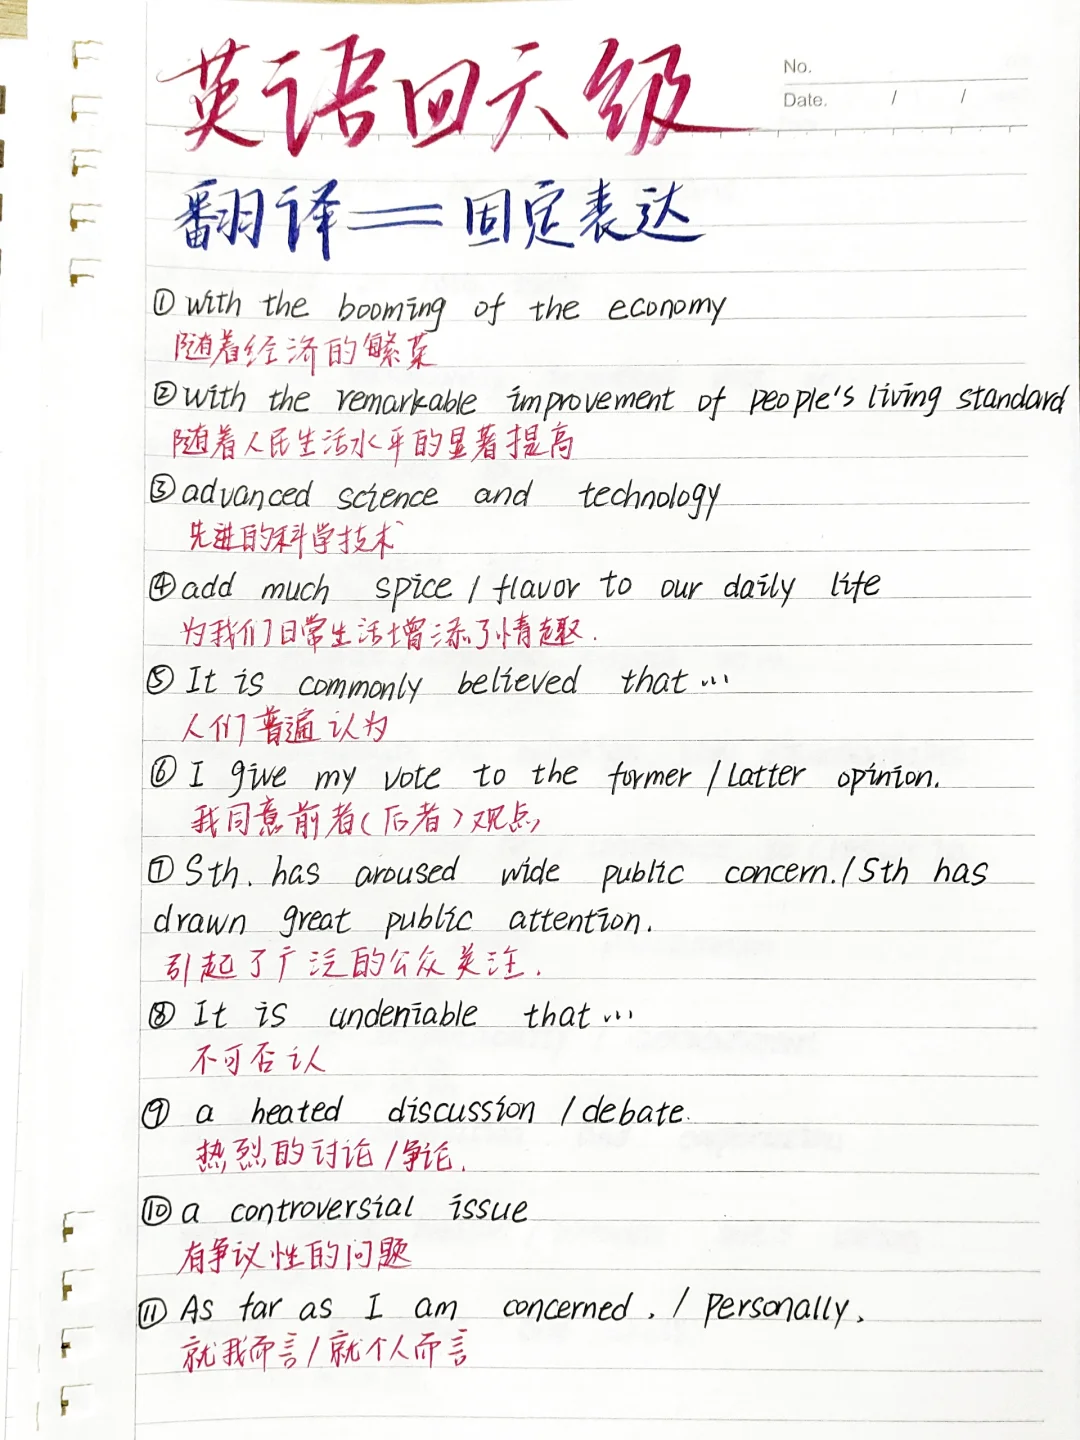 英语四六级
No.
Date. / /
翻译——固定表达
①with the booming of the economy
随着经济的繁荣
②with the remarkable improvement of people's living standard
随着人民生活水平的显著提高
③advanced science and technology
先进的科学技术
④add much spice / flavor to our daily life
为我们日常生活增添了情趣.
⑤It is commonly believed that...
人们普遍认为
⑥I give my vote to the former / latter opinion.
我同意前者(后者)观点
⑦Sth. has aroused wide public concern. / Sth has
drawn great public attention.
引起了广泛的公众关注.
⑧It is undeniable that...
不可否认
⑨a heated discussion / debate.
热烈的讨论/争论.
⑩a controversial issue
有争议性的问题
⑪As far as I am concerned, / personally,
就我而言/就个人而言